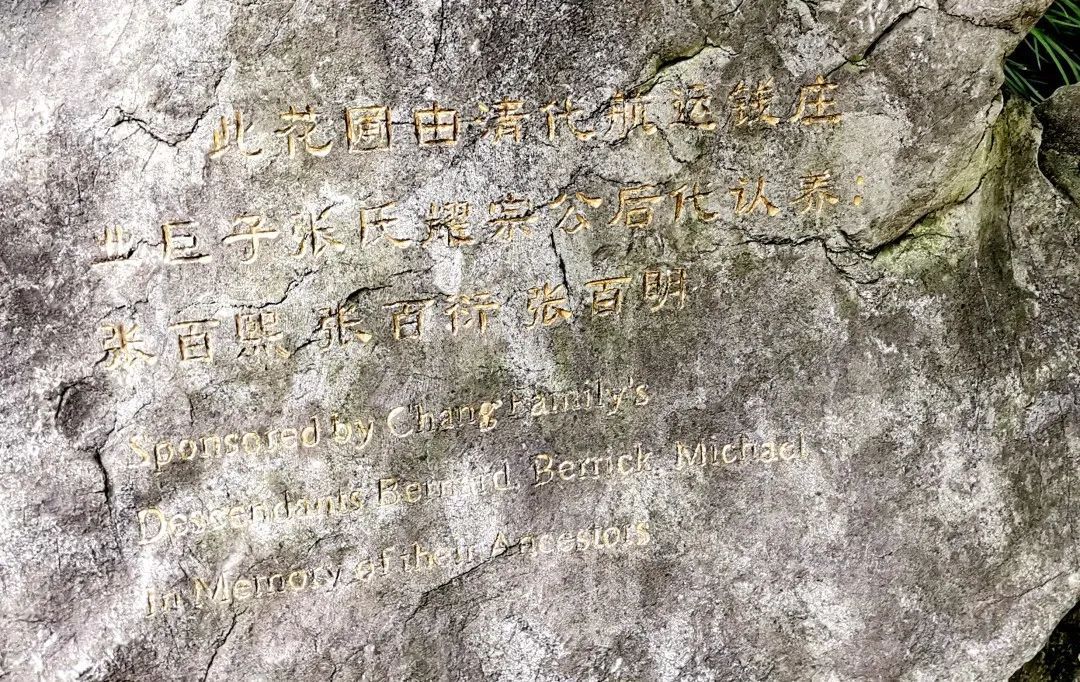 此花圃由清代航运钱庄
业巨子张氏耀宗公后代认养：
张百熙 张百衍 张百明
Sponsored by Chang Family's
Descendants Bernard, Berrick, Michael
In Memory of their Ancestors